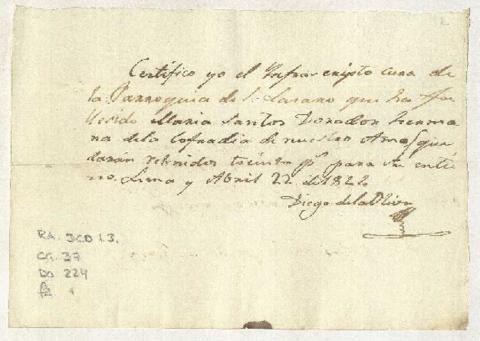 Certifico yo el Infraescripto cura de
la Parroquia de Sn. Lazaro que ha Fa
llecido Maria Santos Donadon herma
na dela Cofradia de nuestro Amo
daran p.s para su entie
rro. Lima y Abril 22 de 182
Diego dela
RA. JCD 1.3.
CG. 37
DO 224